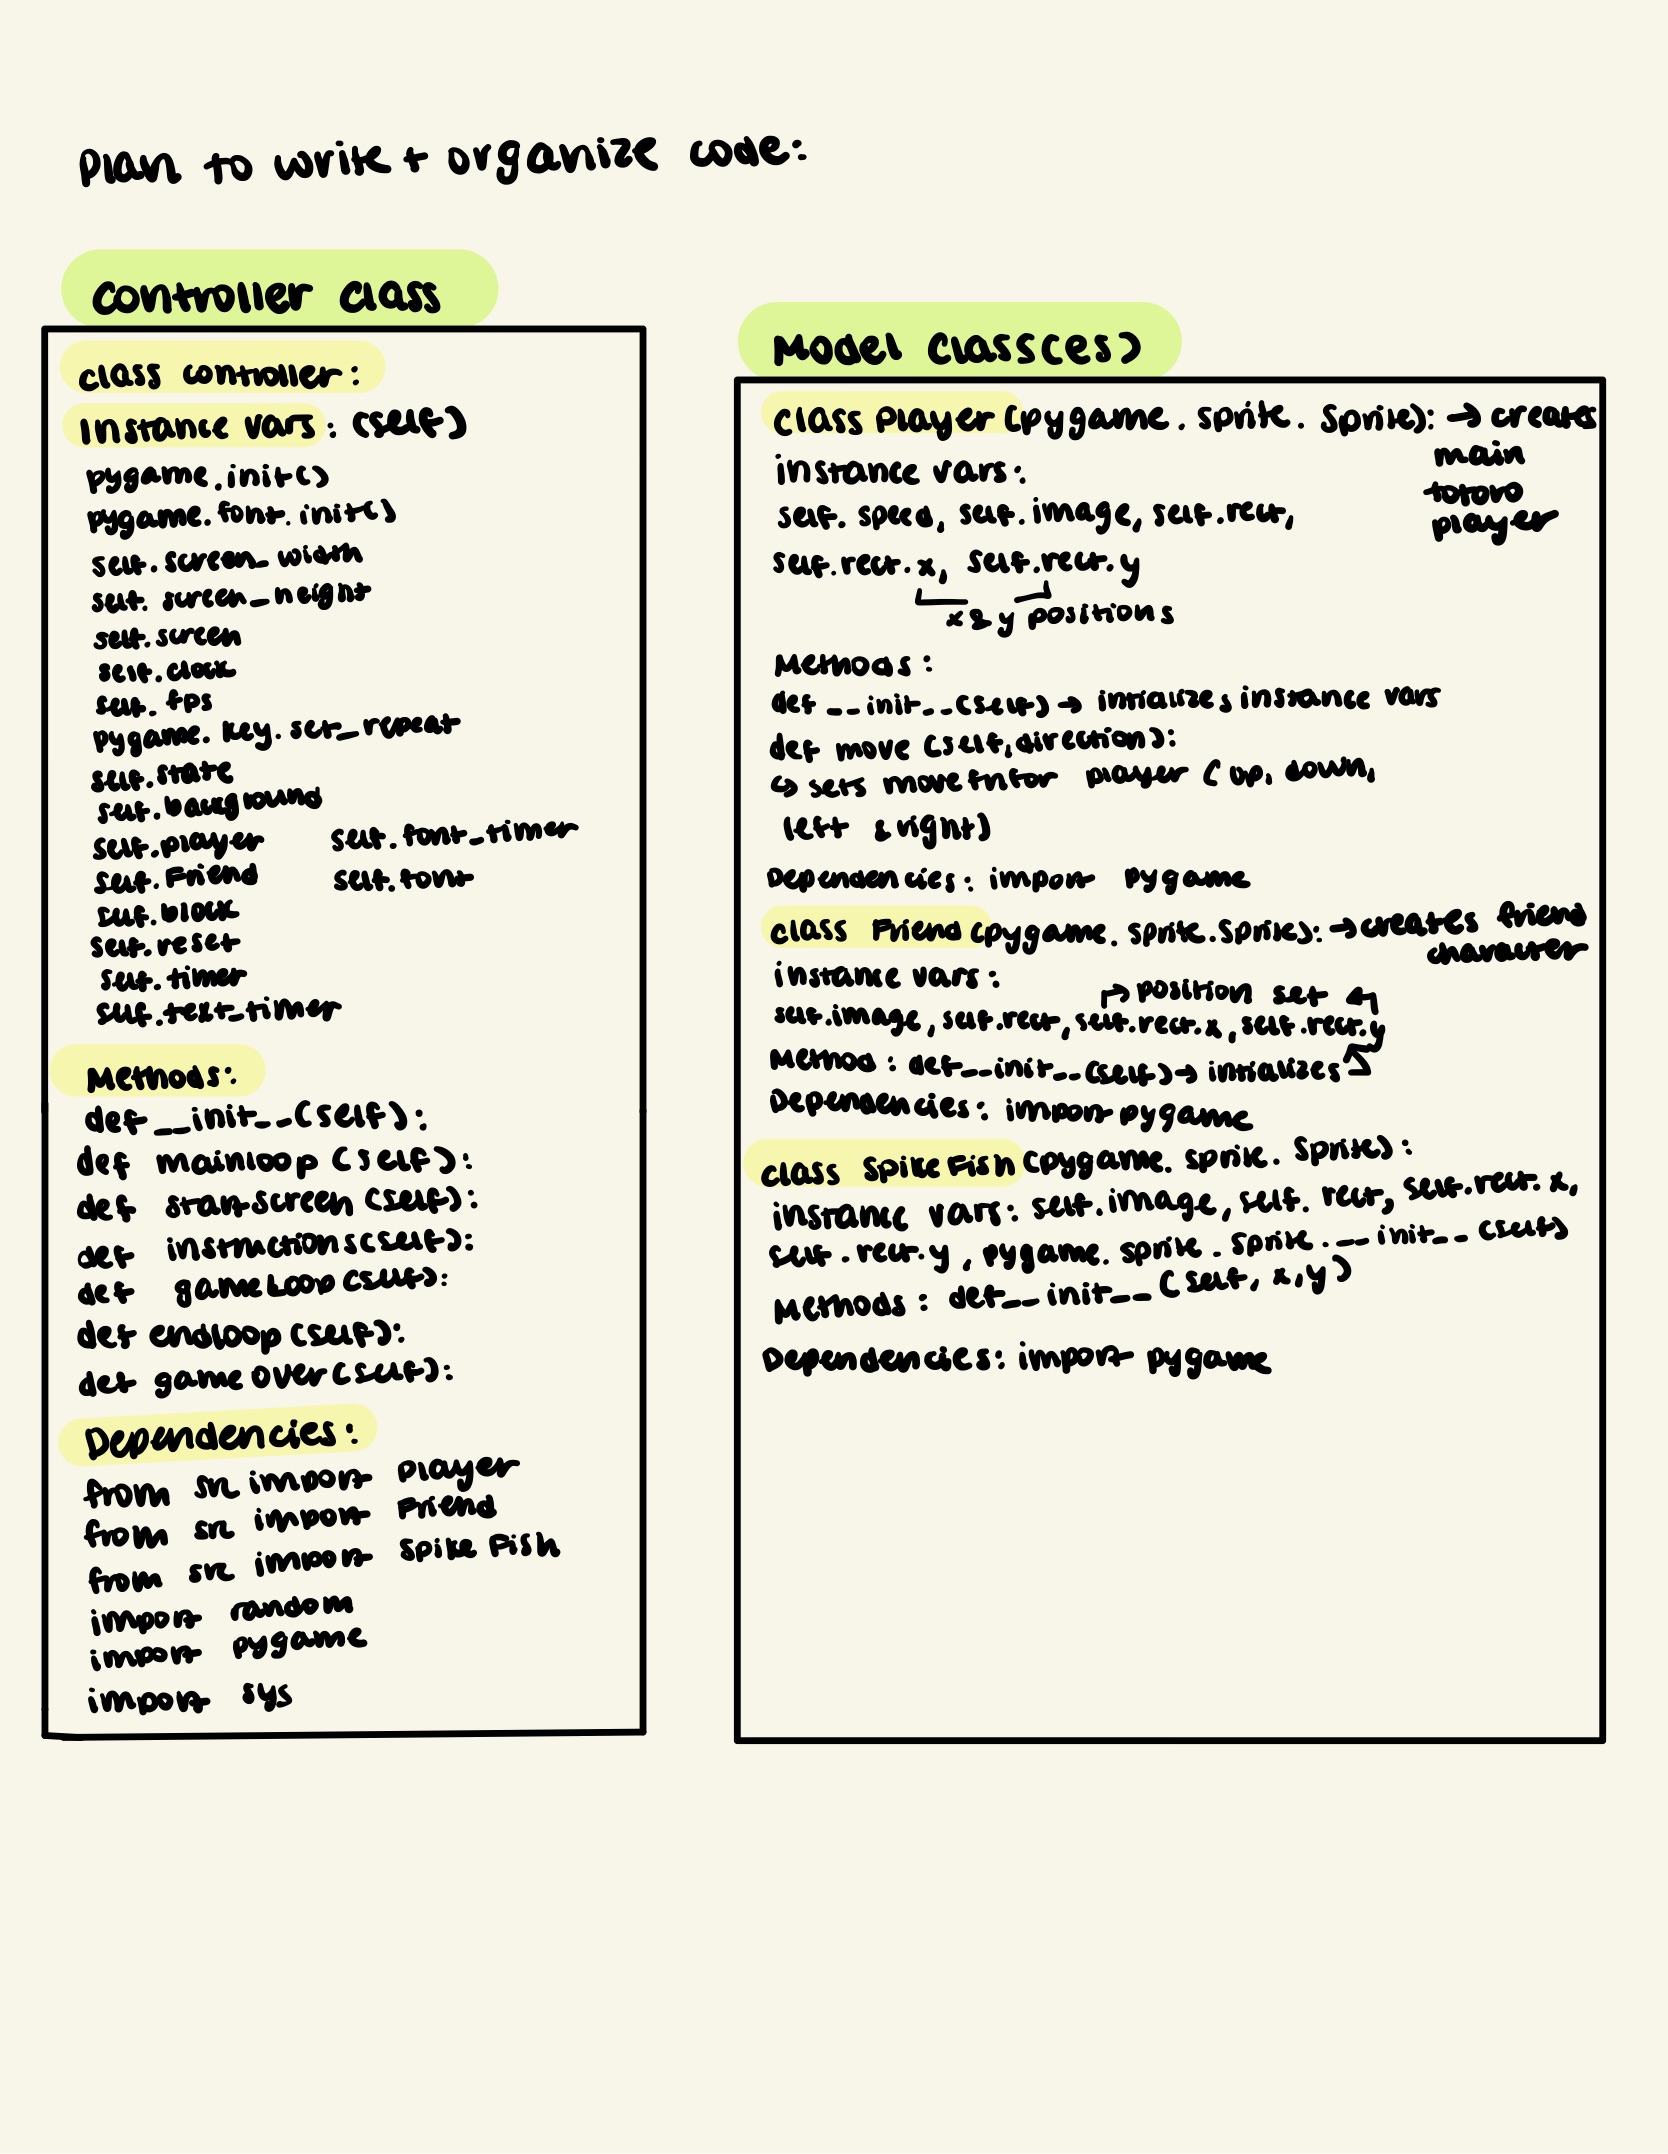 Plan to write + organize code:
Controller Class
class controller:
Instance vars: (self)
pygame.init()
pygame.font.init()
self.screen_width
self.screen_height
self.screen
self.clock
self.fps
pygame.key.set_repeat
self.state
self.background
self.player self.font_timer
self.Friend self.font
self.block
self.reset
self.timer
self.text_timer
Methods:
def __init__(self):
def mainloop (self):
def startscreen (self):
def instructions(self):
def gameLoop (self):
def endloop (self):
def gameOver (self):
Dependencies:
from src import Player
from src import Friend
from src import SpikeFish
import random
import pygame
import sys
Model Class(es)
class Player (pygame.sprite.Sprite): → creates
main
totoro
player
instance vars:
self.speed, self.image, self.rect,
self.rect.x, self.rect.y
x & y positions
Methods:
def __init__(self) → intializes instance vars
def move (self, direction):
↪ sets movefn for player (up, down,
left & right)
Dependencies: import pygame
class Friend (pygame.sprite.Sprite): → creates friend
character
instance vars:
position set
self.image, self.rect, self.rect.x, self.rect.y
Method: def __init__(self) → intializes
Dependencies: import pygame
class SpikeFish (pygame.sprite.Sprite):
instance vars: self.image, self.rect, self.rect.x,
self.rect.y, pygame.sprite.Sprite.__init__(self)
Methods: def __init__(self, x, y)
Dependencies: import pygame